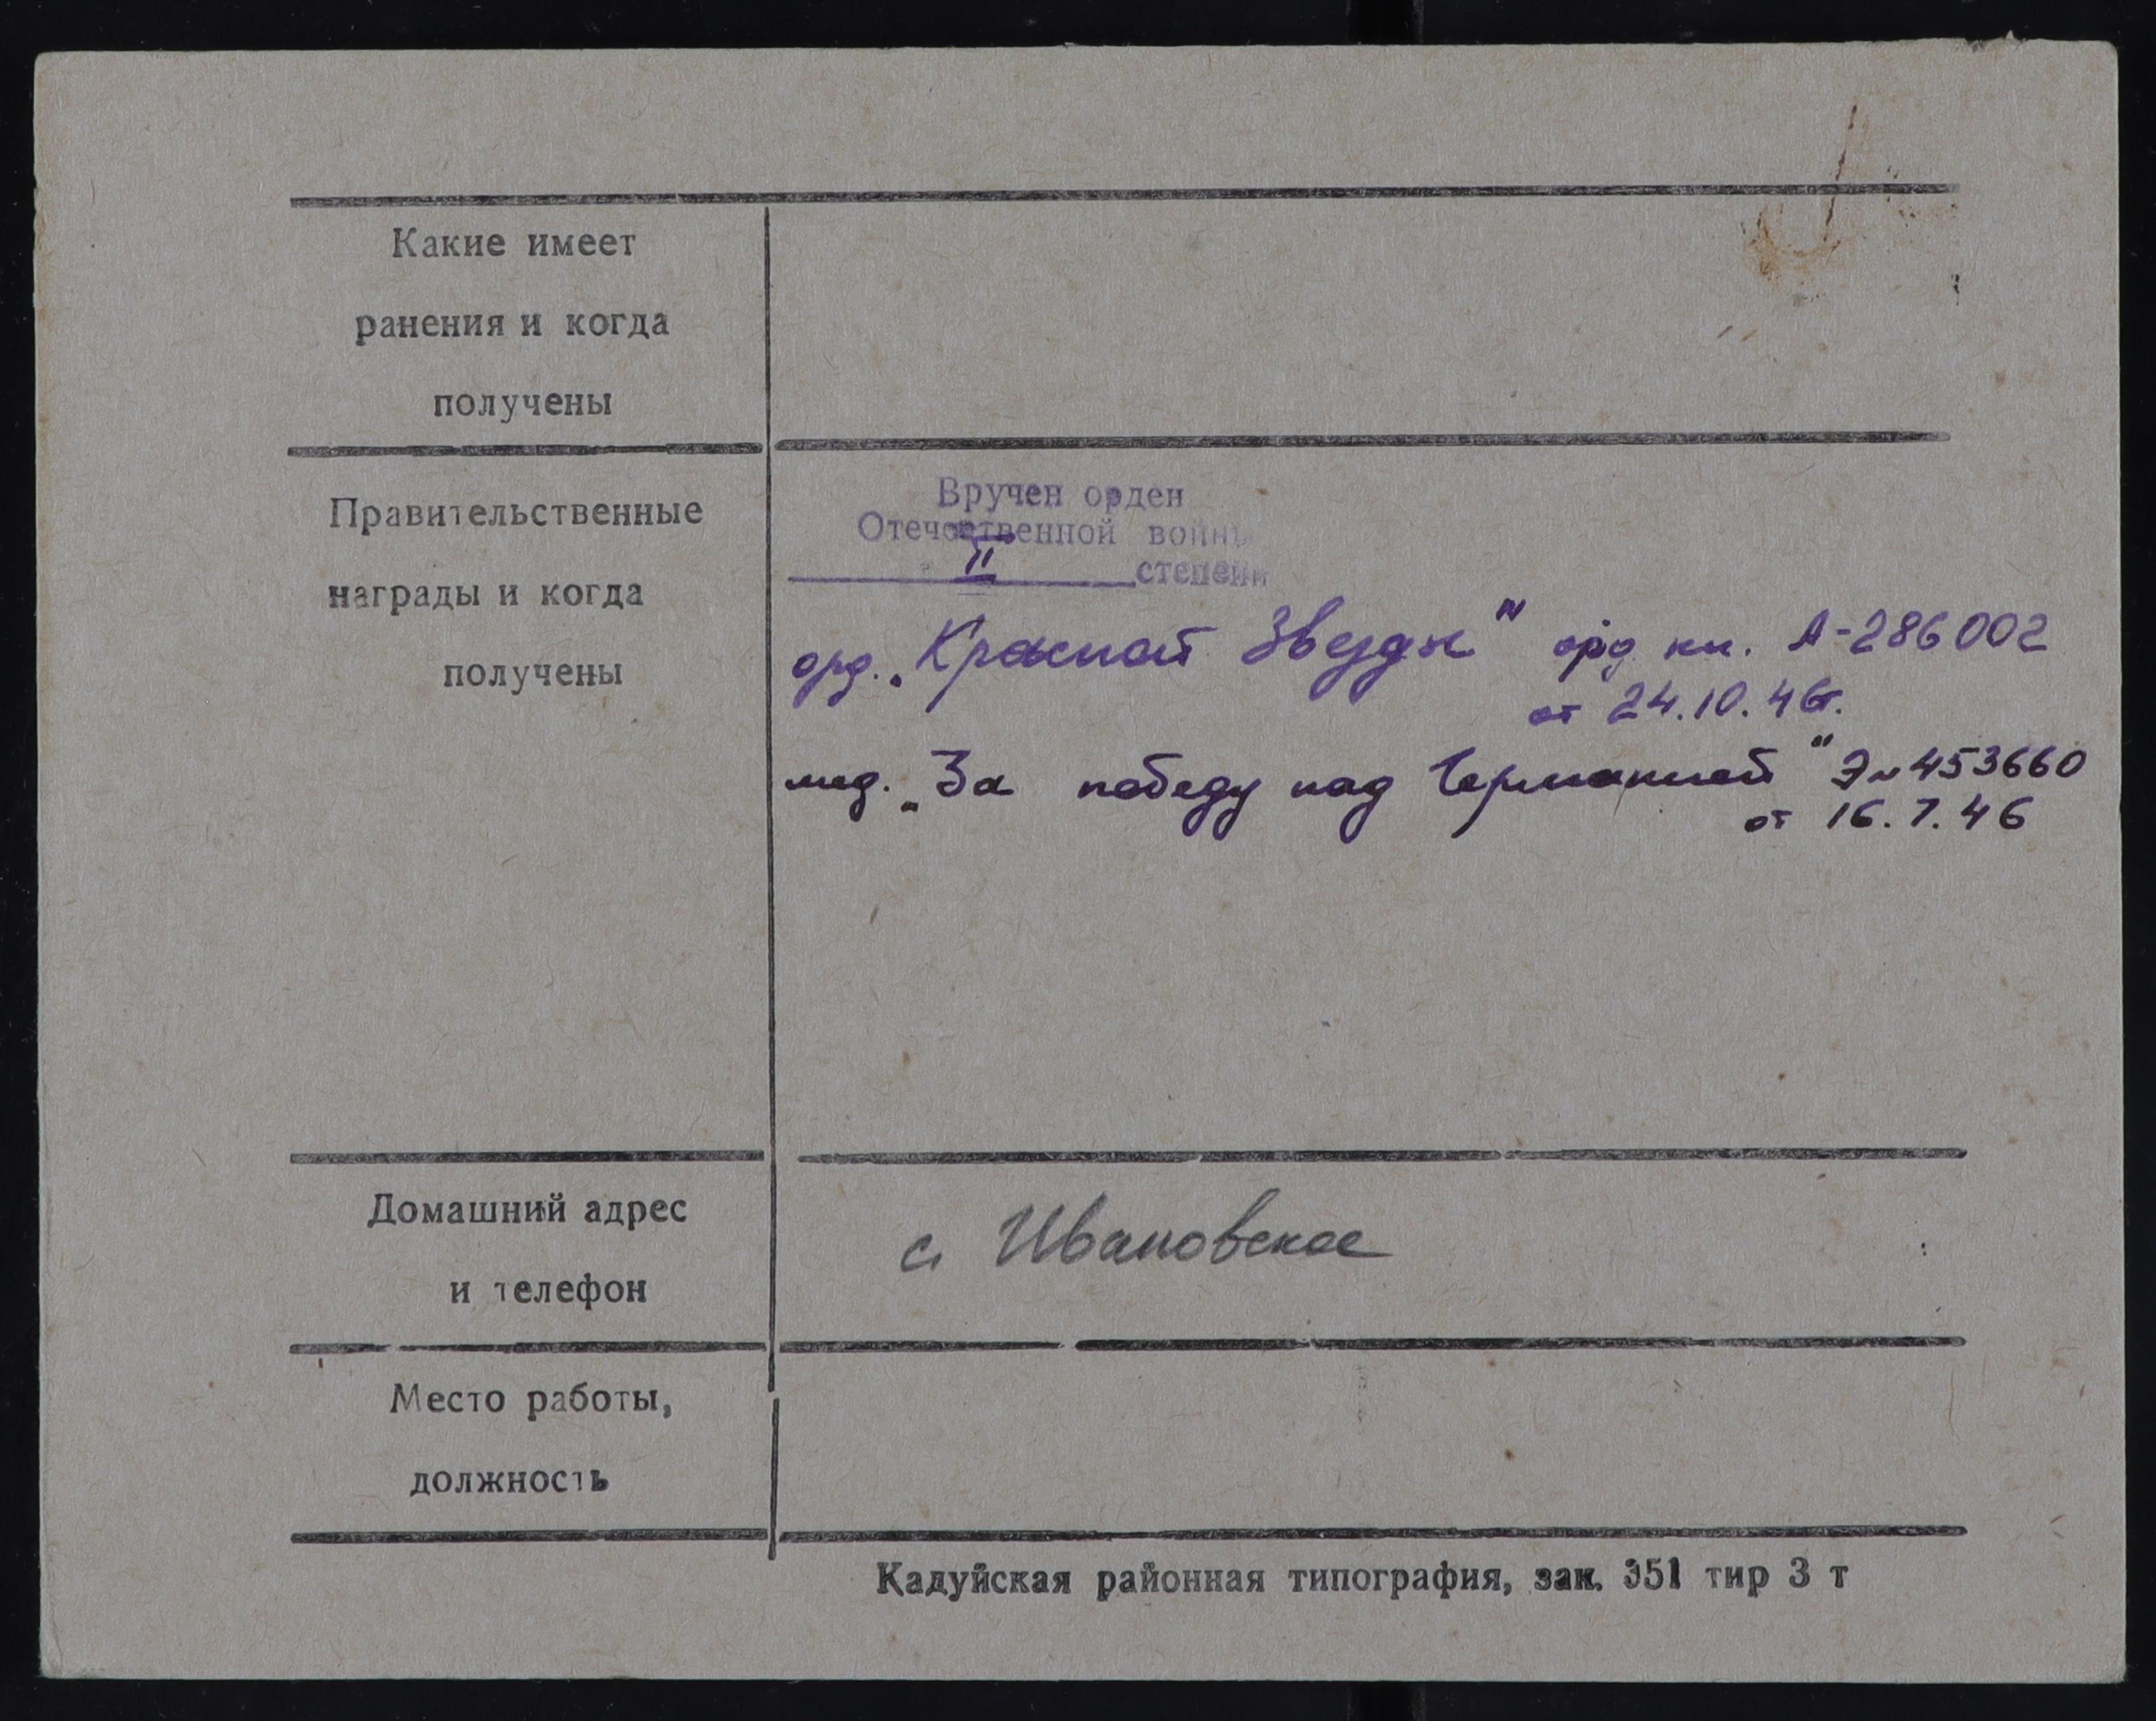 Какие имеет
ранения и когда
получены
Правительственные
награды и когда
получены
Вручен орден
Отечественной войны
II степени
орд. „Красной Звезды" орд кн. А-286002
от 24.10.46г.
мед. „За победу над Германией" Э№453660
от 16.7.46
Домашний адрес
и телефон
с. Ивановское
Место работы,
должность
Кадуйская районная типография, зак. 351 тир 3 т